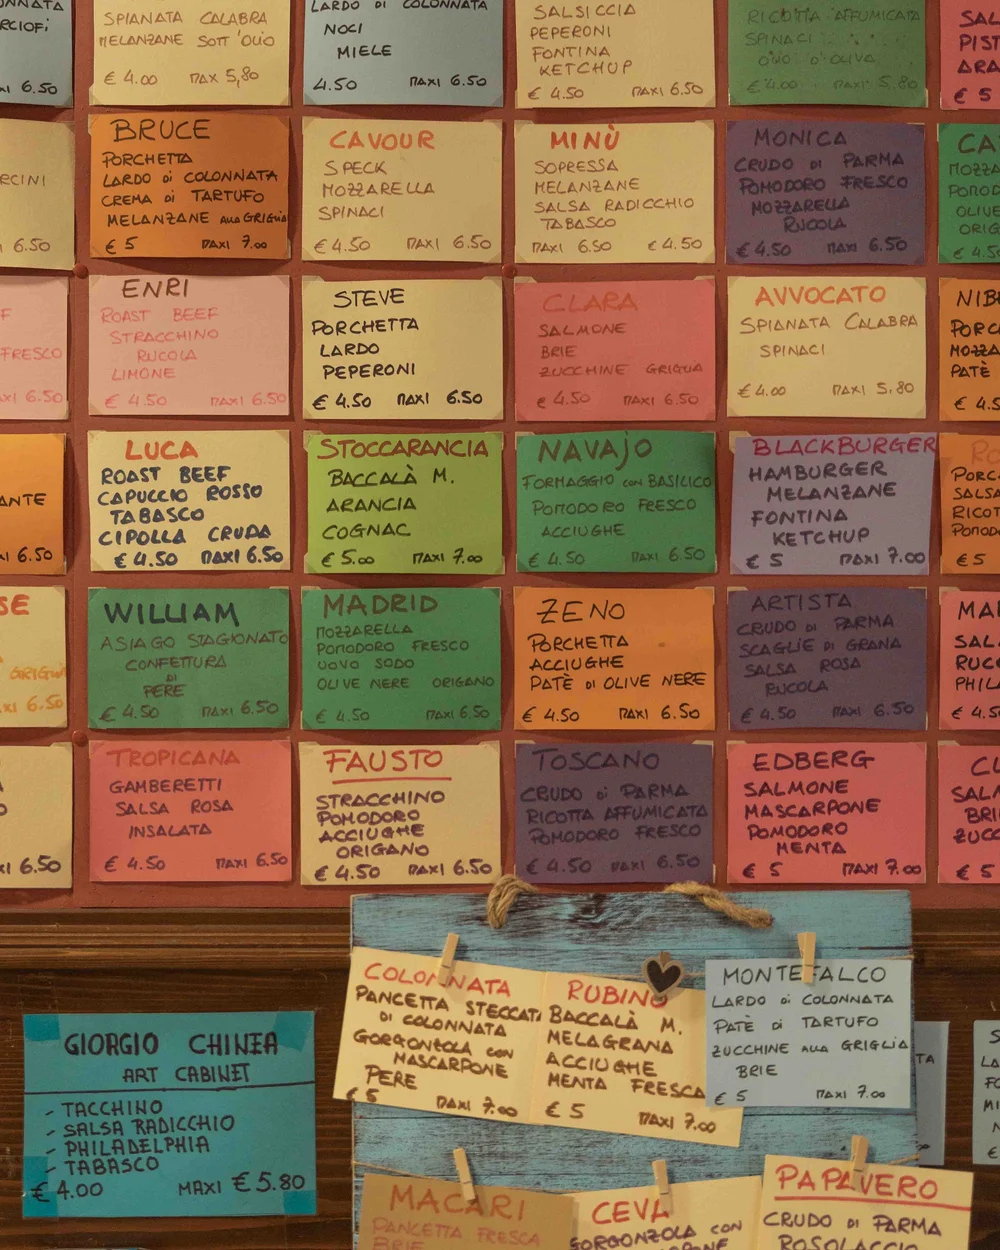 SPIANATA CALABRA
MELANZANE SOTT'OLIO
€ 4.00 MAXI 5,80
LARDO DI COLONNATA
NOCI
MIELE
4.50 MAXI 6.50
SALSICCIA
PEPERONI
FONTINA
KETCHUP
€ 4.50 MAXI 6.50
RICOTTA AFFUMICATA
SPINACI
OLIO D'OLIVA
€ 4.00 MAXI 5.80
€ 5
6.50
BRUCE
PORCHETTA
LARDO di COLONNATA
CREMA di TARTUFO
MELANZANE ALLA GRIGLIA
€ 5 MAXI 7.00
CAVOUR
SPECK
MOZZARELLA
SPINACI
€ 4.50 MAXI 6.50
MINÙ
SOPRESSA
MELANZANE
SALSA RADICCHIO
TABASCO
MAXI 6.50 € 4.50
MONICA
CRUDO DI PARMA
POMODORO FRESCO
MOZZARELLA
RUCOLA
€ 4.50 MAXI 6.50
6.50
ENRI
ROAST BEEF
STRACCHINO
RUCOLA
LIMONE
€ 4.50 MAXI 6.50
STEVE
PORCHETTA
LARDO
PEPERONI
€ 4.50 MAXI 6.50
CLARA
SALMONE
BRIE
ZUCCHINE GRIGLIA
€ 4.50 MAXI 6.50
AVVOCATO
SPIANATA CALABRA
SPINACI
€ 4.00 MAXI 5.80
PATÈ
FRESCO
6.50
LUCA
ROAST BEEF
CAPUCCIO ROSSO
TABASCO
CIPOLLA CRUDA
€ 4.50 MAXI 6.50
STOCCARANCIA
BACCALÀ M.
ARANCIA
COGNAC
€ 5.00 MAXI 7.00
NAVAJO
FORMAGGIO CON BASILICO
POMODORO FRESCO
ACCIUGHE
€ 4.50 MAXI 6.50
BLACKBURGER
HAMBURGER
MELANZANE
FONTINA
KETCHUP
€ 5 MAXI 7.00
SALSA
€ 5
6.50
WILLIAM
ASIAGO STAGIONATO
CONFETTURA
DI
PERE
€ 4.50 MAXI 6.50
MADRID
MOZZARELLA
POMODORO FRESCO
UOVO SODO
OLIVE NERE ORIGANO
€ 4.50 MAXI 6.50
ZENO
PORCHETTA
ACCIUGHE
PATÈ DI OLIVE NERE
€ 4.50 MAXI 6.50
ARTISTA
CRUDO DI PARMA
SCAGLIE DI GRANA
SALSA ROSA
RUCOLA
€ 4.50 MAXI 6.50
6.50
TROPICANA
GAMBERETTI
SALSA ROSA
INSALATA
€ 4.50 MAXI 6.50
FAUSTO
STRACCHINO
POMODORO
ACCIUGHE
ORIGANO
€ 4.50 MAXI 6.50
TOSCANO
CRUDO di PARMA
RICOTTA AFFUMICATA
POMODORO FRESCO
€ 4.50 MAXI 6.50
EDBERG
SALMONE
MASCARPONE
POMODORO
MENTA
€ 5 MAXI 7.00
€ 5
6.50
COLONNATA
PANCETTA STECCATA
DI COLONNATA
GORGONZOLA CON
MASCARPONE
PERE
€ 5 MAXI 7.00
RUBINO
BACCALÀ M.
MELAGRANA
ACCIUGHE
MENTA FRESCA
€ 5 MAXI 7.00
MONTEFALCO
LARDO di COLONNATA
PATÈ di TARTUFO
ZUCCHINE ALLA GRIGLIA
BRIE
€ 5 MAXI 7.00
GIORGIO CHINEA
ART CABINET
- TACCHINO
- SALSA RADICCHIO
- PHILADELPHIA
- TABASCO
€ 4.00 MAXI € 5.80
MACARI
PANCETTA FRESCA
BRIE
CEVA
GORGONZOLA CON
PAPAVERO
CRUDO DI PARMA
ROSOLACCIO